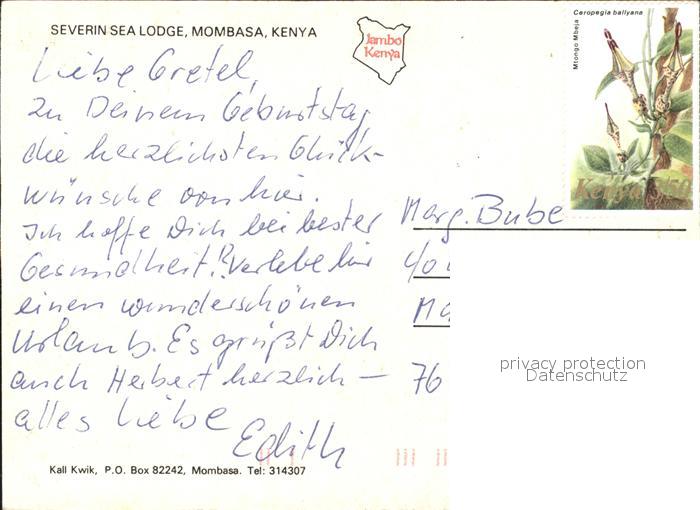 SEVERIN SEA LODGE, MOMBASA, KENYA
Jambo
Kenya
Ceropegia ballyana
Mtongo Mbeja
Kenya 3/50
Liebe Gretel,
zu Deinem Geburtstag
die herzlichsten Glück-
wünsche von hier.
Ich hoffe Dich bei bester
Gesundheit! Verlebe hier
einen wunderschönen
Urlaub. Es grüßt Dich
auch Herbert herzlich —
alles Liebe
Edith
Marg. Bube
40
Ma
76
privacy protection
Datenschutz
Kall Kwik, P.O. Box 82242, Mombasa. Tel: 314307